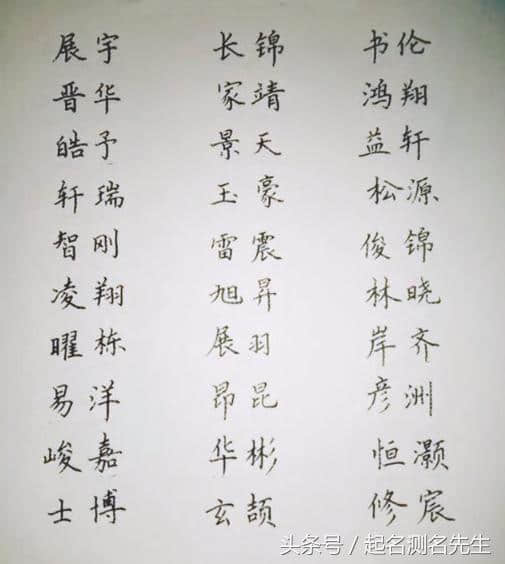 展宇 长锦 书伦
晋华 家靖 鸿翔
皓予 景天 益轩
轩瑞 玉豪 松源
智刚 雷震 俊锦
凌翔 旭昇 林晓
曜栋 展羽 岸齐
易洋 昂昆 彦洲
峻嘉 华彬 恒灏
士博 玄颉 修宸
头条号 / 起名测名先生